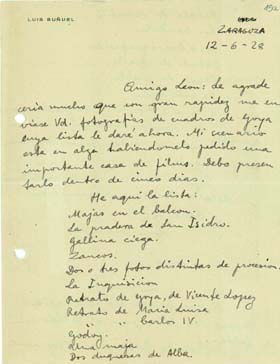 152
LUIS BUÑUEL
ZARAGOZA
12-6-28
Amigo Leon: Le agrade
ceria mucho que con gran rapidez me en
viase Vd. fotografias de cuadros de Goya
cuya lista le daré ahora. Mi scenario
esta en alza habiendomelo pedido una
importante casa de films. Debo presen
tarlo dentro de cinco dias.
He aqui la lista:
Majas en el balcon.
La pradera de San Isidro.
Gallina ciega.
Zancos.
Dos o tres fotos distintas de procesion.
La Inquisicion
Retrato de Goya, de Vicente Lopez
Retrato de Maria Luisa
" " Carlos IV
Godoy.
Una maja
Dos duquesas de Alba.